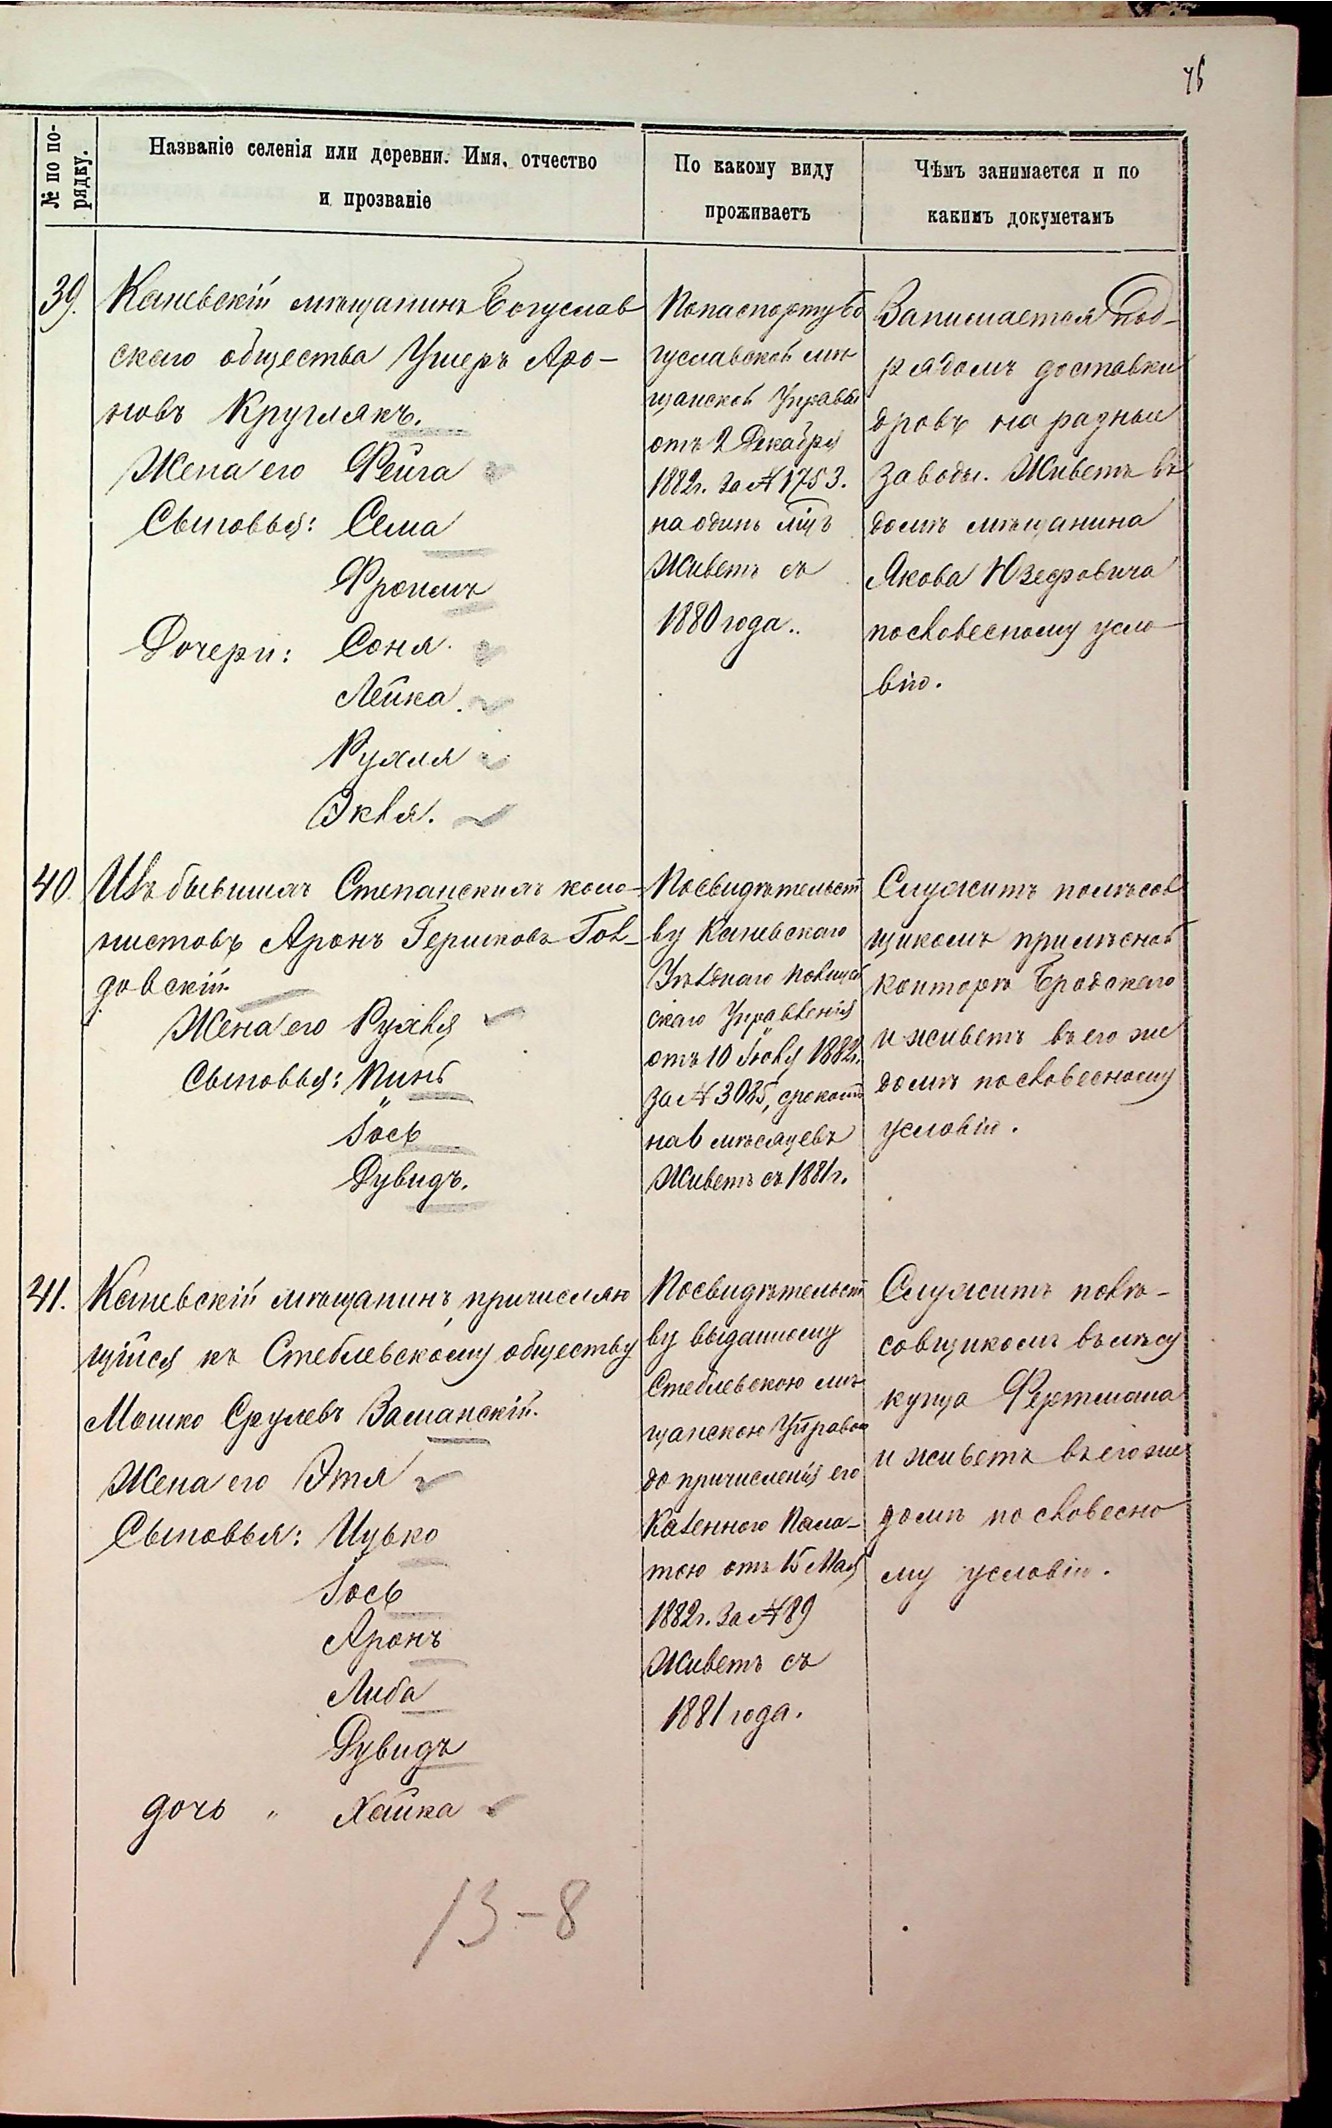 75
№ по по-
рядку.
Названіе селенія или деревни. Имя, отчество
и прозваніе
По какому виду
проживаетъ
Чѣмъ занимается и по
какимъ докуметамъ
39.
Каневскій мѣщанинъ Богуслав
скаго общества Ушеръ Аро-
новъ Круглякъ.
Жена его Фейга
Сыновья: Сема
Фроимъ
Дочери: Соня.
Лейка.
Рухля
Экля.
По паспорту Бо
гуславской мѣ
щанской Управы
отъ 2 Декабря
1882 г. за № 1753.
на одинъ мѣц
Живетъ съ
1880 года..
Занимается под-
рядомъ доставки
дровъ на разные
заводы. Живетъ въ
домѣ мѣщанина
Якова Юзефовича
по словесному усло-
вію.
40
Изъ бывшихъ Степанскихъ коло-
нистовъ Аронъ Гершковъ Гол-
довскій
Жена его Рухля
Сыновья: Пинь
Іось
Дувидъ.
По свидѣтельст
ву Каневскаго
Уѣзднаго Полицей
скаго Управленія
отъ 10 Іюля 1882 г.
за № 3085, срокомъ
на 6 мѣсяцевъ
Живетъ съ 1881 г.
Служитъ
щикомъ при лѣсной
конторѣ Бродскаго
и живетъ въ его же
домѣ по словесному
условію.
41.
Каневскій мѣщанинъ, причисляю
щійся къ Стеблевскому обществу
Мошко Срулевъ Заманскій.
Жена его Этя
Сыновья: Ицько
Іось
Аронъ
Либа
Дувидъ
дочь „ Хайка
По свидѣтельст
ву выданному
Стеблевскою мѣ
щанскою Управою
до причисленія его
Казенною Пала-
тою отъ 15 Мая
1882 г. за № 89
Живетъ съ
1881 года.
Служитъ полѣ-
совщикомъ въ лѣсу
купца Фертмана
и живетъ въ его же
домѣ по словесно
му условію.
13-8